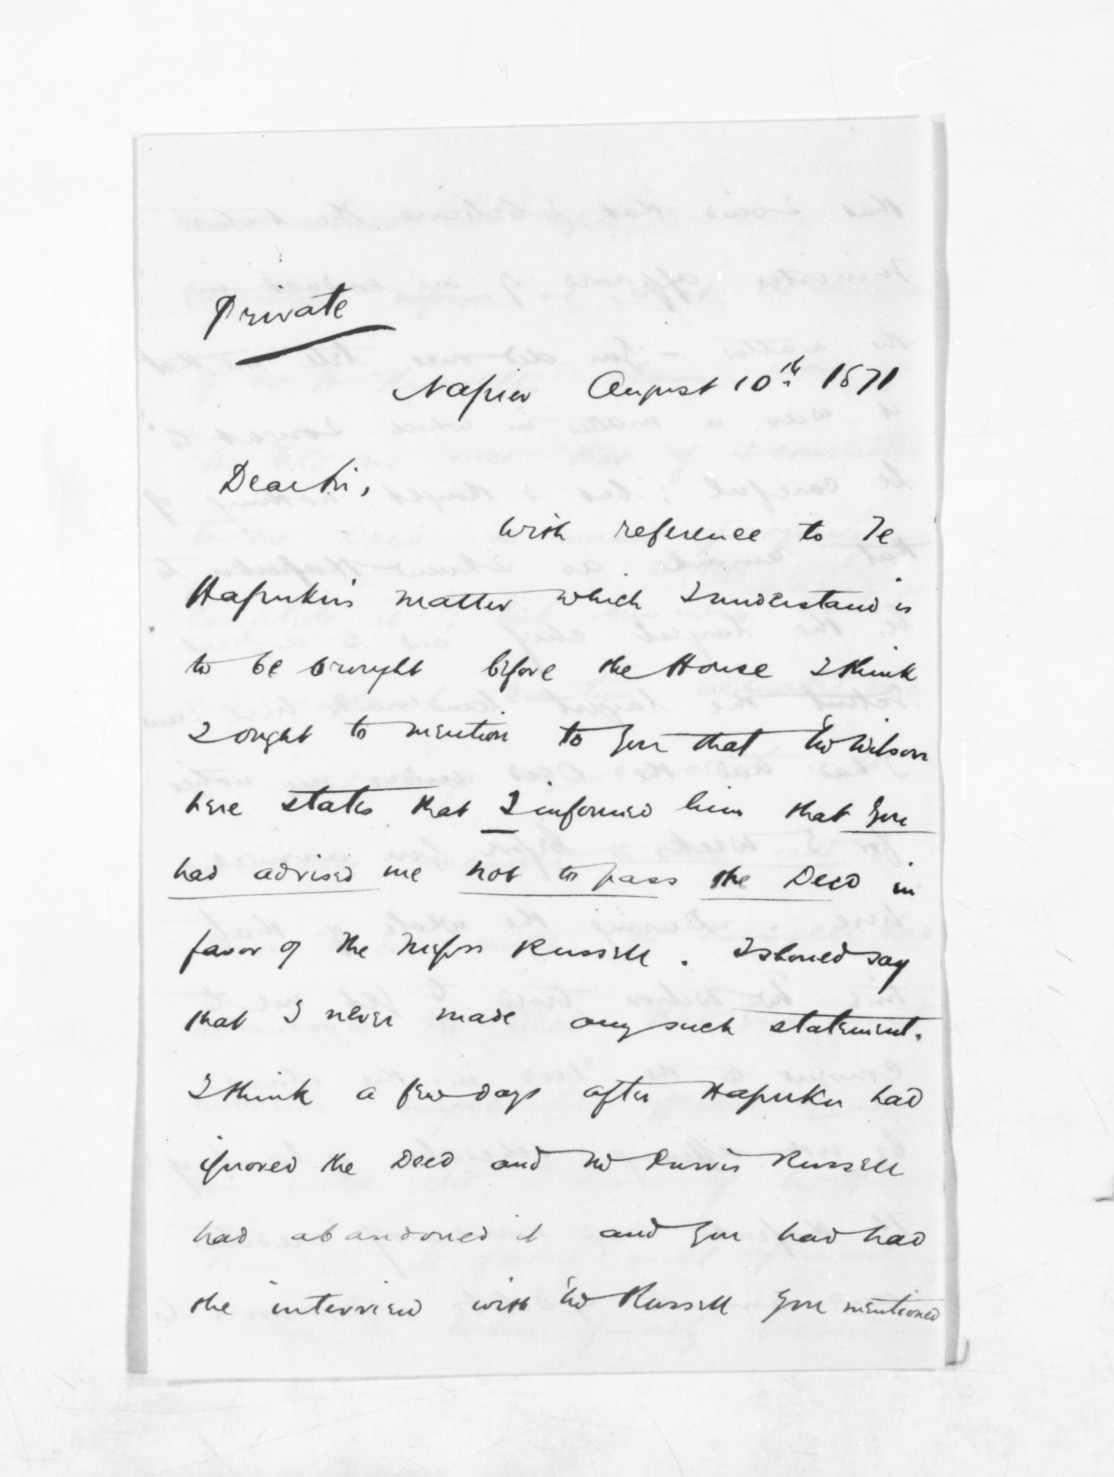 Private
Napier August 10th 1871
Dear Sir,
With reference to Te
Hapuku's matter which I understand is
to be brought before the House I think
I ought to mention to you that Mr Wilson
here states that I informed him that you
had advised me not to pass the Deed in
favor of the Messrs Russell. I should say
that I never made any such statement.
I think a few days after Hapuku had
signed the Deed and Mr Purvis Russell
had abandoned it and you had had
the interview with Mr Russell you mentioned